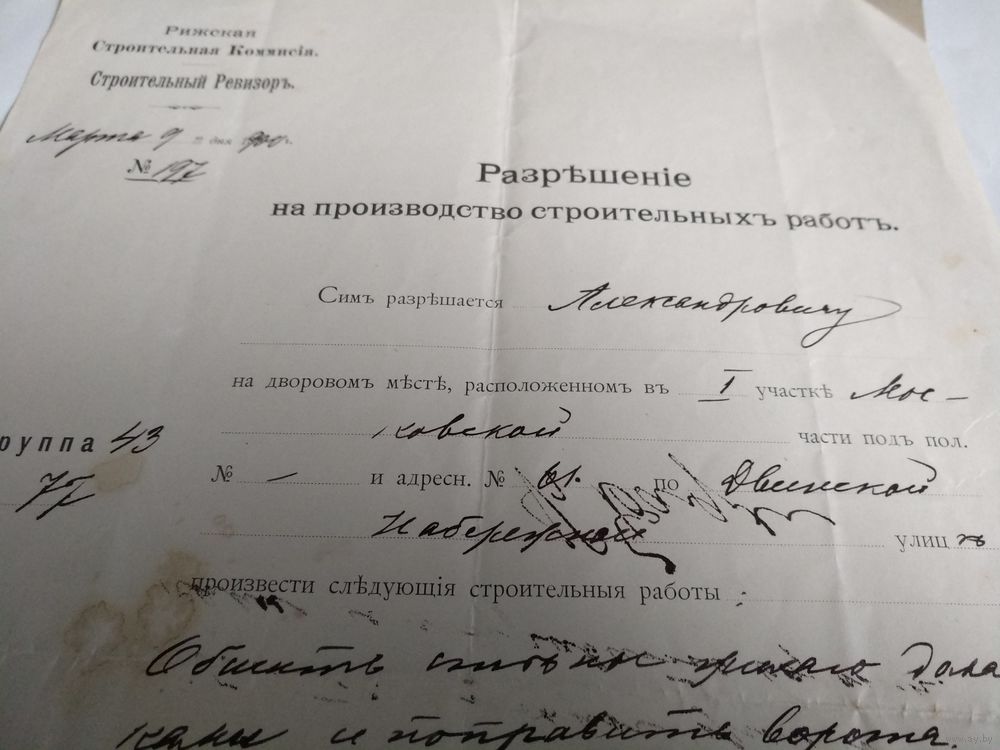 Рижская
Строительная Коммисія.
Строительный Ревизоръ.
Марта 9 дня 1900 г.
№ 197
Разрѣшеніе
на производство строительныхъ работъ.
Симъ разрѣшается Александровичу
на дворовомъ мѣстѣ, расположенномъ въ I участкѣ Мос-
ковской части подъ пол.
руппа 43
77
№ — и адресн. № 61. по Двинской
Набережной улиц
произвести слѣдующія строительныя работы :
Обшить жилаго дома
и поправить ворота.
www.ay.by